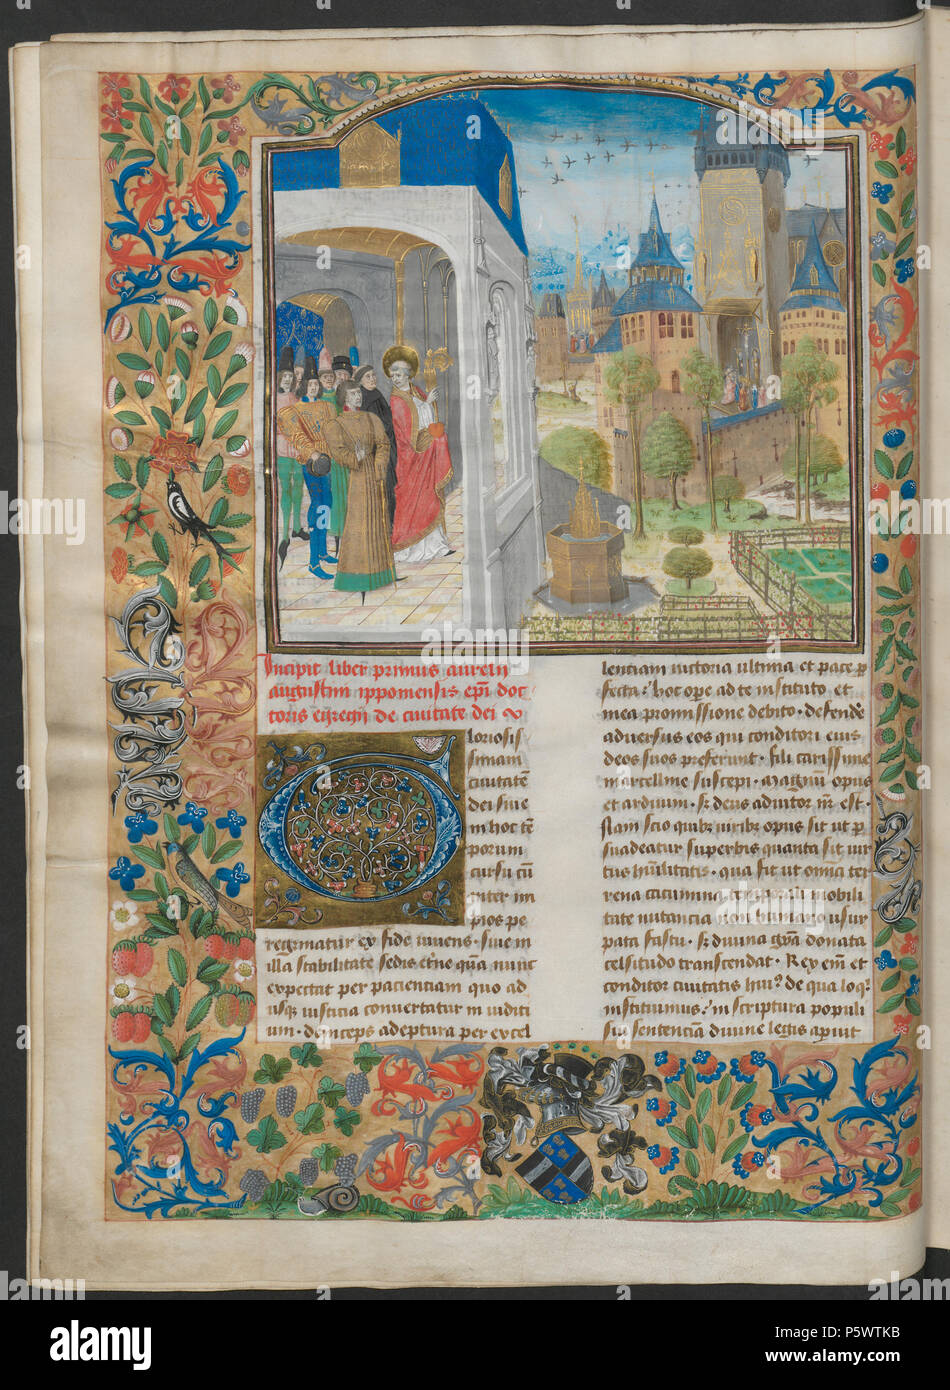 Incipit liber primus aurelii
augustini ipponensis epi doc
toris egregii de ciuitate dei
Gloriosis
simam
ciuitate
dei siue
in hoc te
porum
cursu cu
inter im
pios pe
regrinatur ex fide uiuens · siue in
illa stabilitate sedis etne qua nunc
expectat per pacientiam quo ad
usq iusticia conuertatur in iuditi
um · deinceps adeptura per excel
lentiam uictoria ultima et pace p
fecta · hoc ope ad te instituto et
mea promissione debito · defende
aduersus eos qui conditori eius
deos suos preferunt · fili carissime
marcelline suscepi · Magnu opus
et arduum · s deus adiutor nr est ·
Nam scio quibz uiribz opus sit ut p
suadeatur superbis quanta sit uir
tus humilitatis · qua fit ut omia ter
rena cacumina temporali mobili
tate nutancia non humano usur
pata fastu · s diuina gra donata
celsitudo transcendat · Rex em et
conditor ciuitatis hui de qua loq
instituimus · in scriptura populi
sui sentencia diuine legis apuit
alamy
a
alamy
Image ID: P5WTKB
www.alamy.com